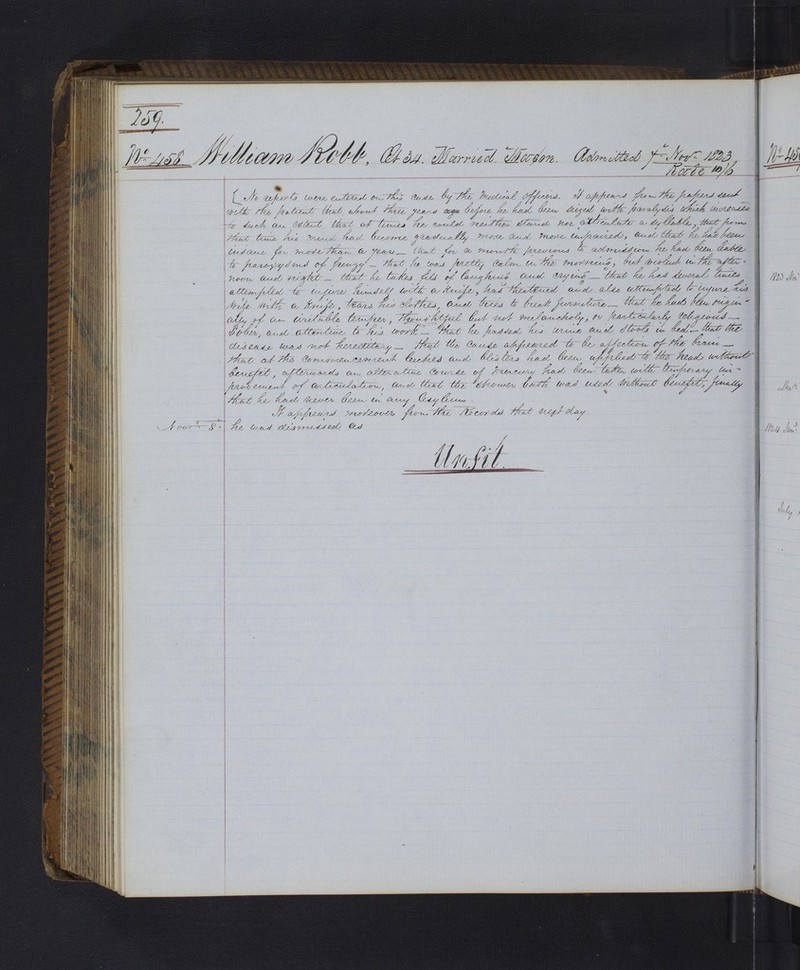 259.
No 458. William Robb, Æt 34. Married. Mason. Admitted 7th Novr 1823
Rate 10/6
[No reports were entered on this case by the medical officers. It appears from the papers sent
with the patient that about three years ago before he had been seized with paralysis which increased
to such an extent that at times he could neither stand nor articulate a syllable, that from
that time his mind had become gradually more and more impaired, and that he had been
insane for more than a year — that for a month previous to admission he had been liable
to paroxysms of frenzy — that he was pretty calm in the morning, but violent in the after-
noon and night — that he takes fits of laughing and crying — that he has several times
attempted to injure himself with a knife, has threatened and also attempted to injure his
wife with a knife, tears his clothes, and tries to break furniture — that he had been origin-
ally of an irritable temper, thoughtful but not melancholy, or particularly religious —
Sober, and attentive to his work — that he passed his urine and stools in bed — that the
disease was not hereditary — that the cause appeared to be affection of the brain —
that at the commencement leeches and blisters had been applied to the head without
benefit, afterwards an alterative course of mercury had been taken with temporary im-
provement of articulation, and that the shower bath was used without benefit, finally
that he had never been in any Asylum.
It appears moreover from the Records that next day
Novr 8. he was dismissed as
Unfit.
No 45
1823 Nov
1824 Jany
July